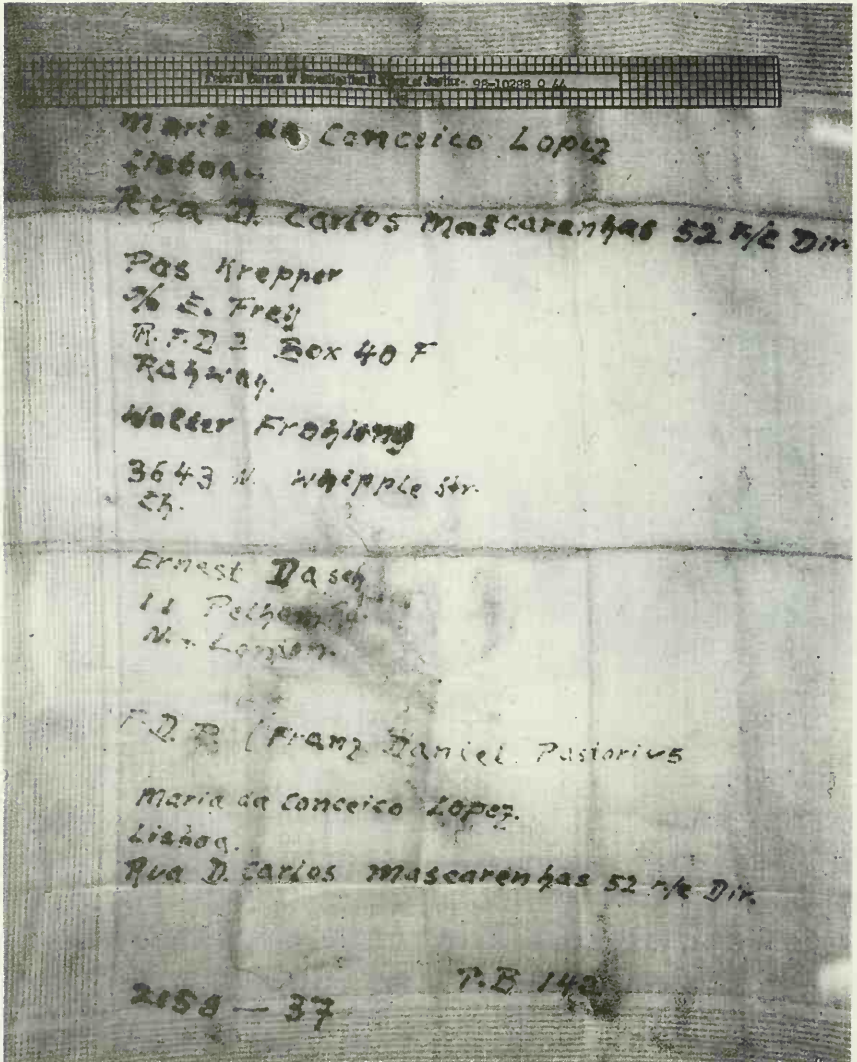 Federal Bureau of Investigation of Justice 98-10288 Q 44
Maria da Conceico Lopez
Lisboa.
Rua D. Carlos Mascarenhas 52 r/c Dir.
Pas Krepper
c/o E. Frey
R.F.D 2 Box 40 F
Rahway.
Walter Frohling
3643 N. Whipple Str.
Ch.
Ernest Dasch
11 Pelham
London.
F.D.P. (Franz Daniel Pastorius
Maria da Conceico Lopez.
Lisboa.
Rua D. Carlos Mascarenhas 52 r/c Dir.
P.B 149
2158 — 37